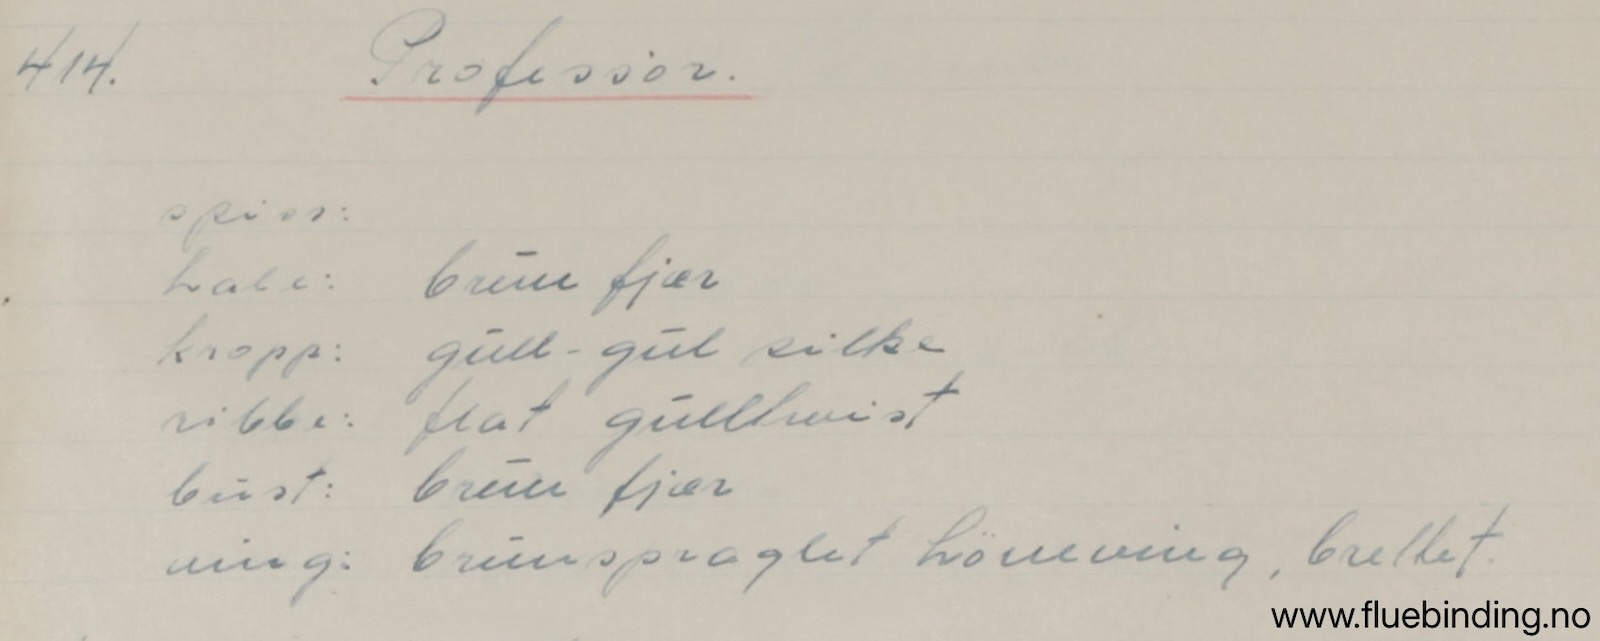 414. Professor.
spiss:
hale: brun fjær
kropp: gull-gul silke
ribbe: flat gulltwist
bust: brun fjær
ving: brunspraglet höneving, brettet.
www.fluebinding.no